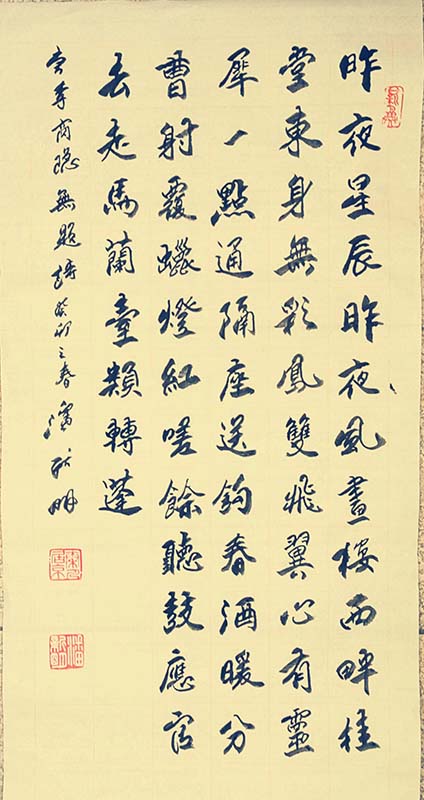 昨夜星辰昨夜風畫樓西畔桂
堂東身無彩鳳雙飛翼心有靈
犀一點通隔座送鈎春酒暖分
曹射覆蠟燈紅嗟餘聽鼓應官
去走馬蘭臺類轉蓬
唐李商隱無題詩癸卯之春潘明